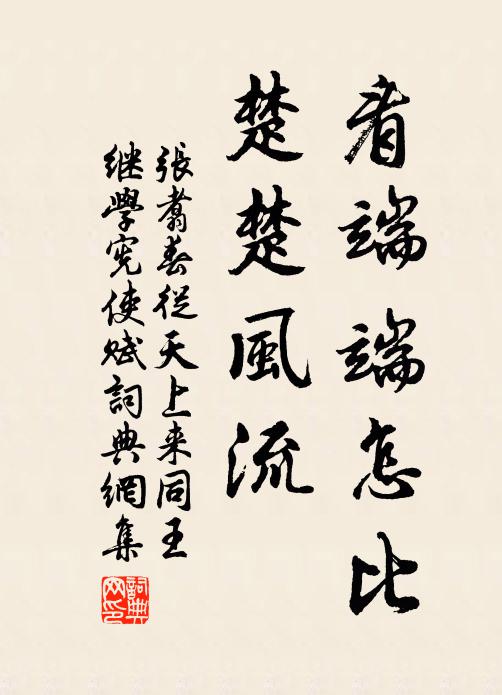 看端端怎比
楚楚風流
張翥春從天上来同王
继學宪使赋詞典網集
詞典網印